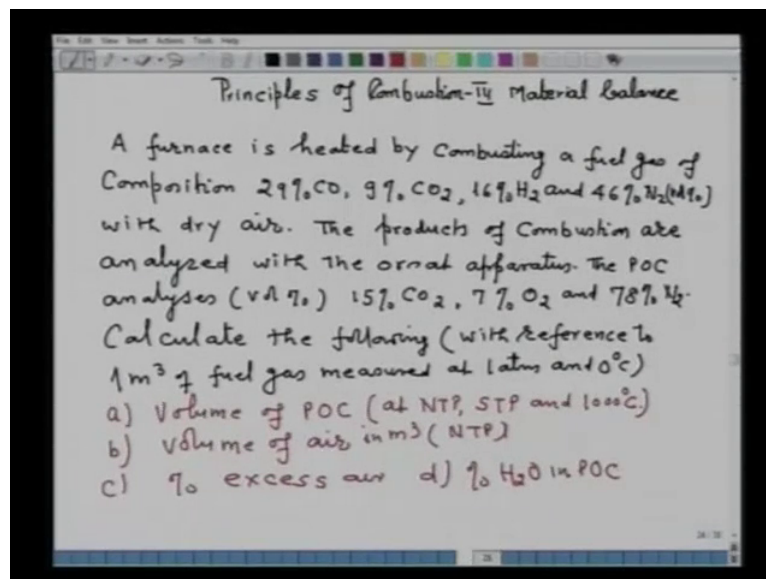 File Edit View Insert Actions Tools Help
Principles of Combustion-IV Material balance
A furnace is heated by combusting a fuel gas of
Composition 29% CO, 9% CO2, 16% H2 and 46% N2 (vol%)
with dry air. The products of Combustion are
analyzed with the orsat apparatus. The POC
analyses (vol %) 15% CO2, 7% O2 and 78% N2.
Calculate the following (with reference to
1m³ of fuel gas measured at 1atm and 0°C)
a) Volume of POC (at NTP, STP and 1000°C)
b) volume of air in m³ (NTP)
c) % excess air d) % H2O in POC